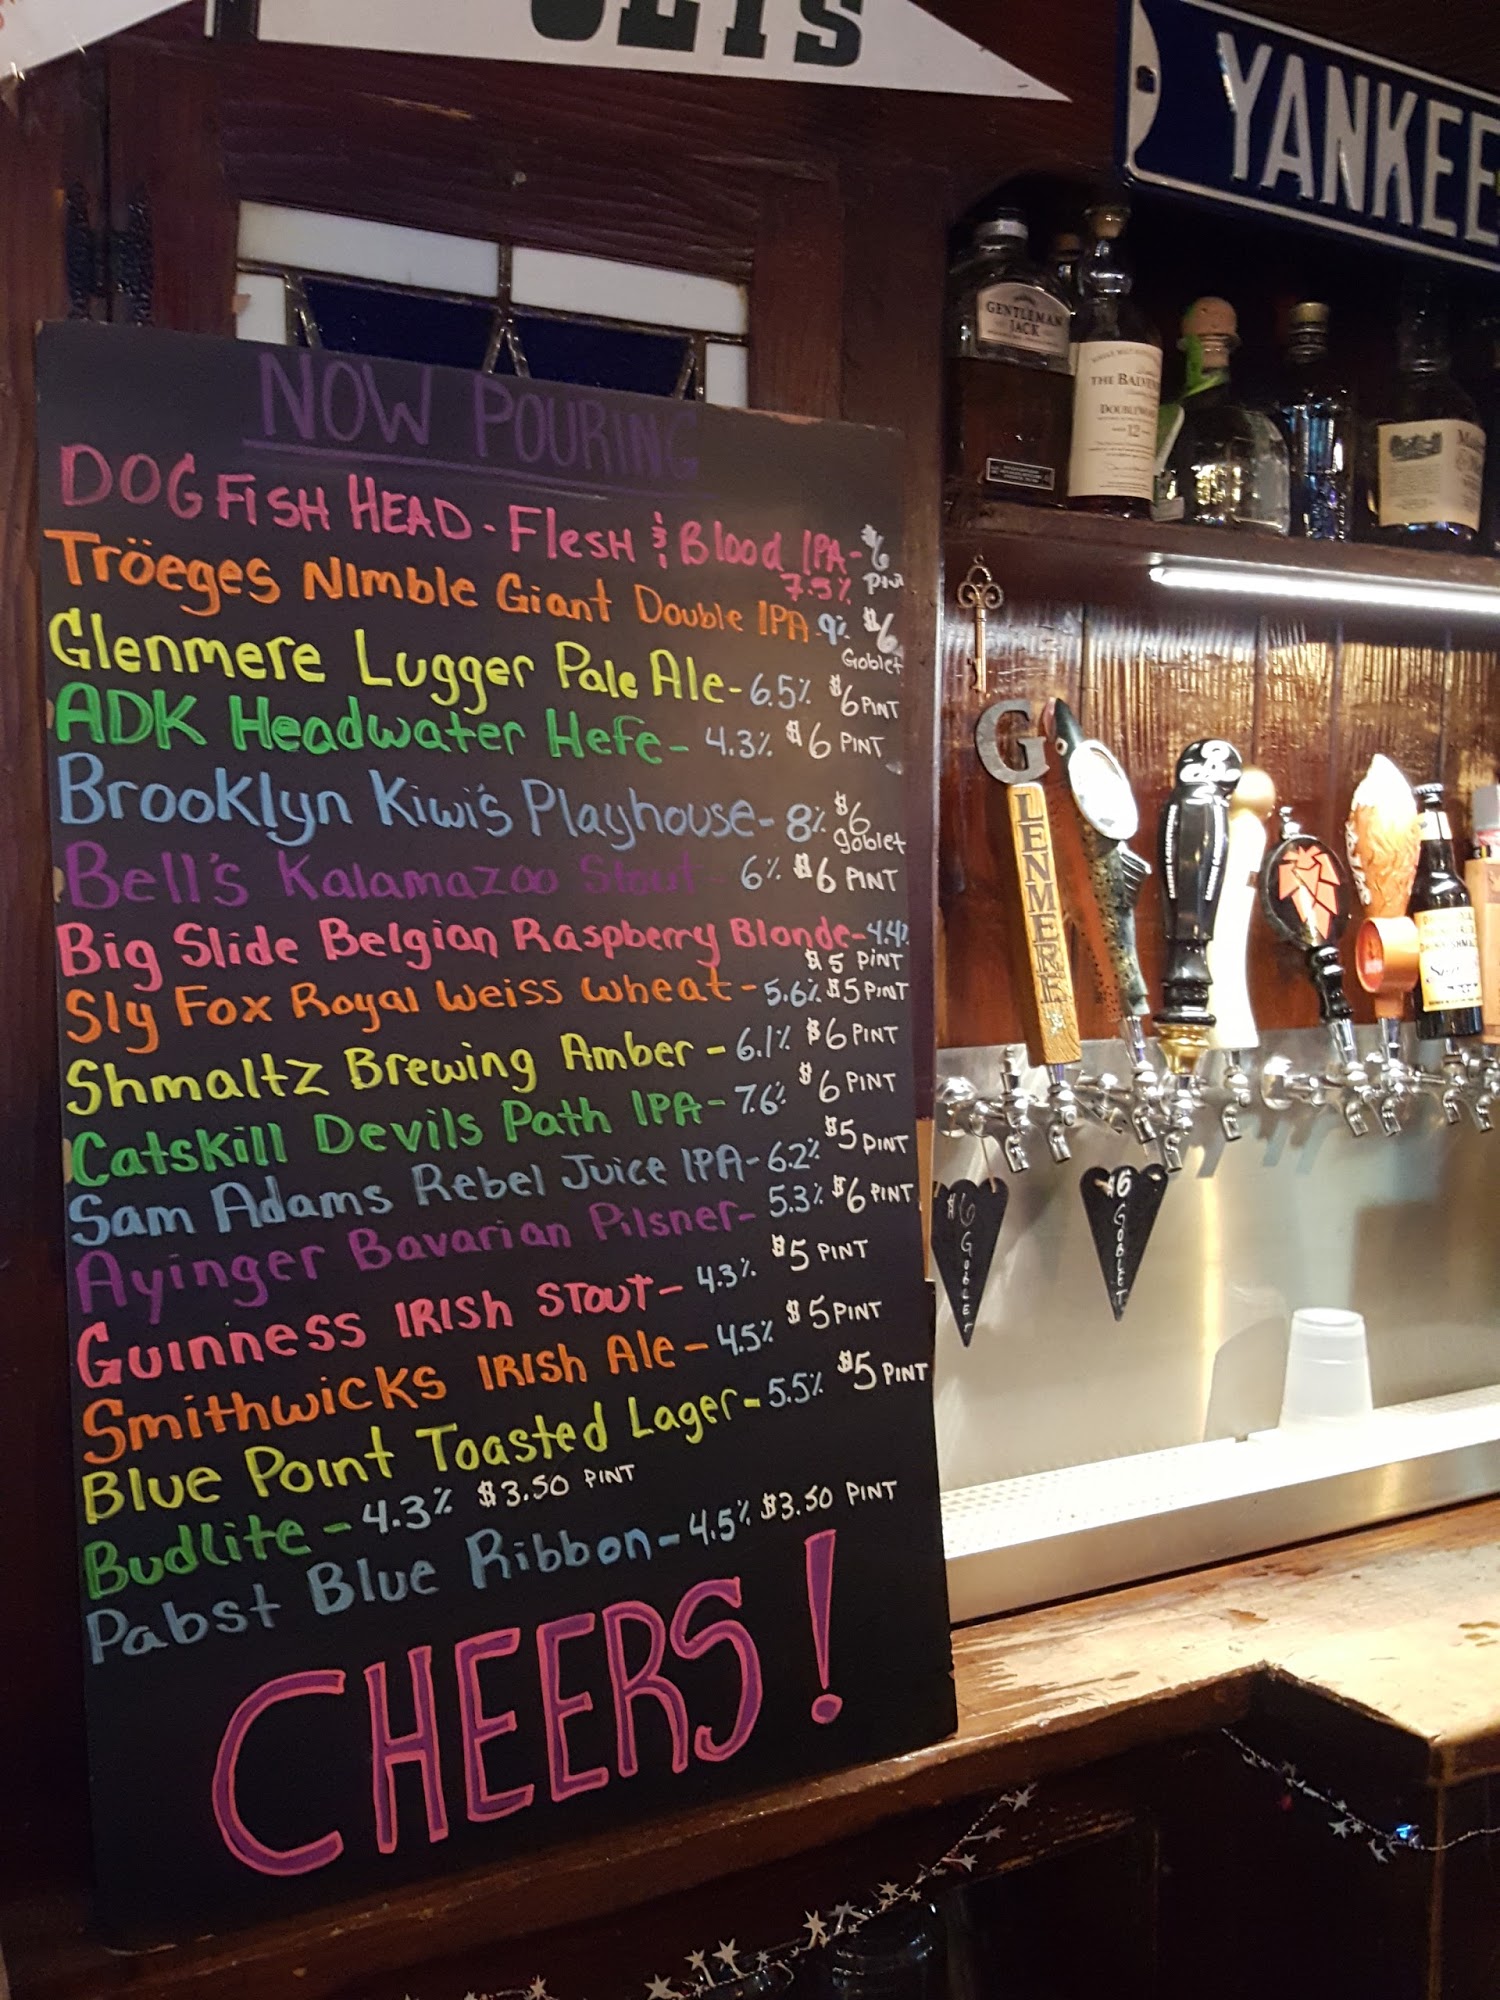 JETS
YANKEE
GENTLEMAN
JACK
THE BALVENIE
DOUBLEWOOD
AGED 12
NOW POURING
DOGFISH HEAD - Flesh & Blood IPA - $6
7.5% Pint
Tröeges NImble Giant Double IPA 9% $6
Goblet
Glenmere Lugger Pale Ale - 6.5% $6 PINT
ADK Headwater Hefe - 4.3% $6 PINT
Brooklyn Kiwi's Playhouse - 8% $6
goblet
Bell's Kalamazoo Stout - 6% $6 PINT
Big Slide Belgian Raspberry Blonde - 4.4%
$5 PINT
Sly Fox Royal Weiss wheat - 5.6% $5 PINT
Shmaltz Brewing Amber - 6.1% $6 PINT
Catskill Devils Path IPA - 7.6% $6 PINT
Sam Adams Rebel Juice IPA - 6.2% $5 PINT
Ayinger Bavarian Pilsner - 5.3% $6 PINT
Guinness IRISh STout - 4.3% $5 PINT
Smithwicks IRISh Ale - 4.5% $5 PINT
Blue Point Toasted Lager - 5.5% $5 PINT
Budlite - 4.3% $3.50 PINT
Pabst Blue Ribbon - 4.5% $3.50 PINT
CHEERS!
G
LENMERE
B
$6 GobLET
$6 GOBLET